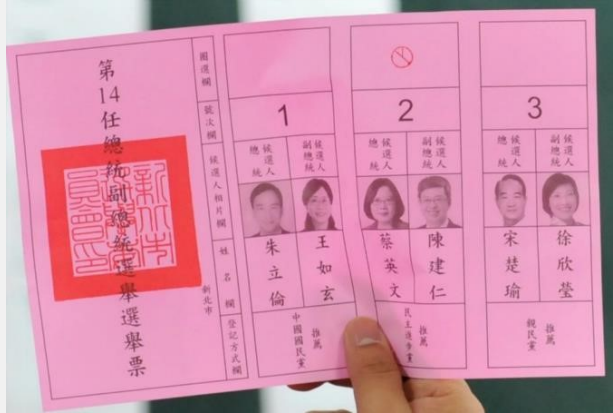 第14任總統副總統選舉選舉票
新北市
圈選欄
號次欄
候選人相片欄
姓名欄
登記方式欄
1
總統
候選人
副總統
候選人
朱立倫
王如玄
中國國民黨
推薦
2
總統
候選人
副總統
候選人
蔡英文
陳建仁
民主進步黨
推薦
3
總統
候選人
副總統
候選人
宋楚瑜
徐欣瑩
親民黨
推薦